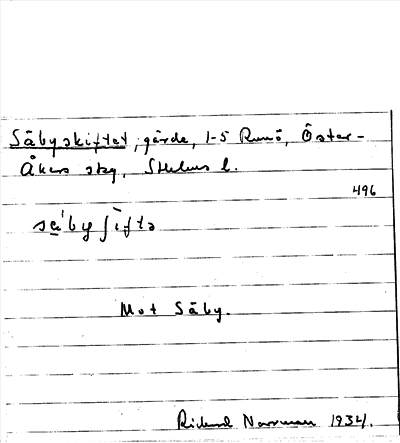 Säbyskiftet, gärde, 1-5 Runö, Öster-
Åkers skg, Sthlms l.
496
Mot Säby.
Rickard Norrman 1934.